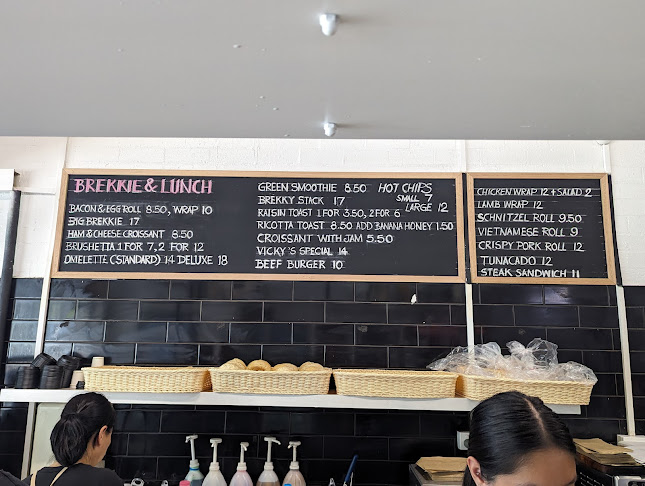 BREKKIE & LUNCH
BACON & EGG ROLL 8.50, WRAP 10
BIG BREKKIE 17
HAM & CHEESE CROISSANT 8.50
BRUSHETTA 1 FOR 7, 2 FOR 12
OMELETTE (STANDARD) 14 DELUXE 18
GREEN SMOOTHIE 8.50
BREKKY STACK 17
RAISIN TOAST 1 FOR 3.50, 2 FOR 6
RICOTTA TOAST 8.50 ADD BANANA HONEY 1.50
CROISSANT WITH JAM 5.50
VICKY'S SPECIAL 14
BEEF BURGER 10
HOT CHIPS
SMALL 7
LARGE 12
CHICKEN WRAP 12 + SALAD 2
LAMB WRAP 12
SCHNITZEL ROLL 9.50
VIETNAMESE ROLL 9
CRISPY PORK ROLL 12
TUNACADO 12
STEAK SANDWICH 11